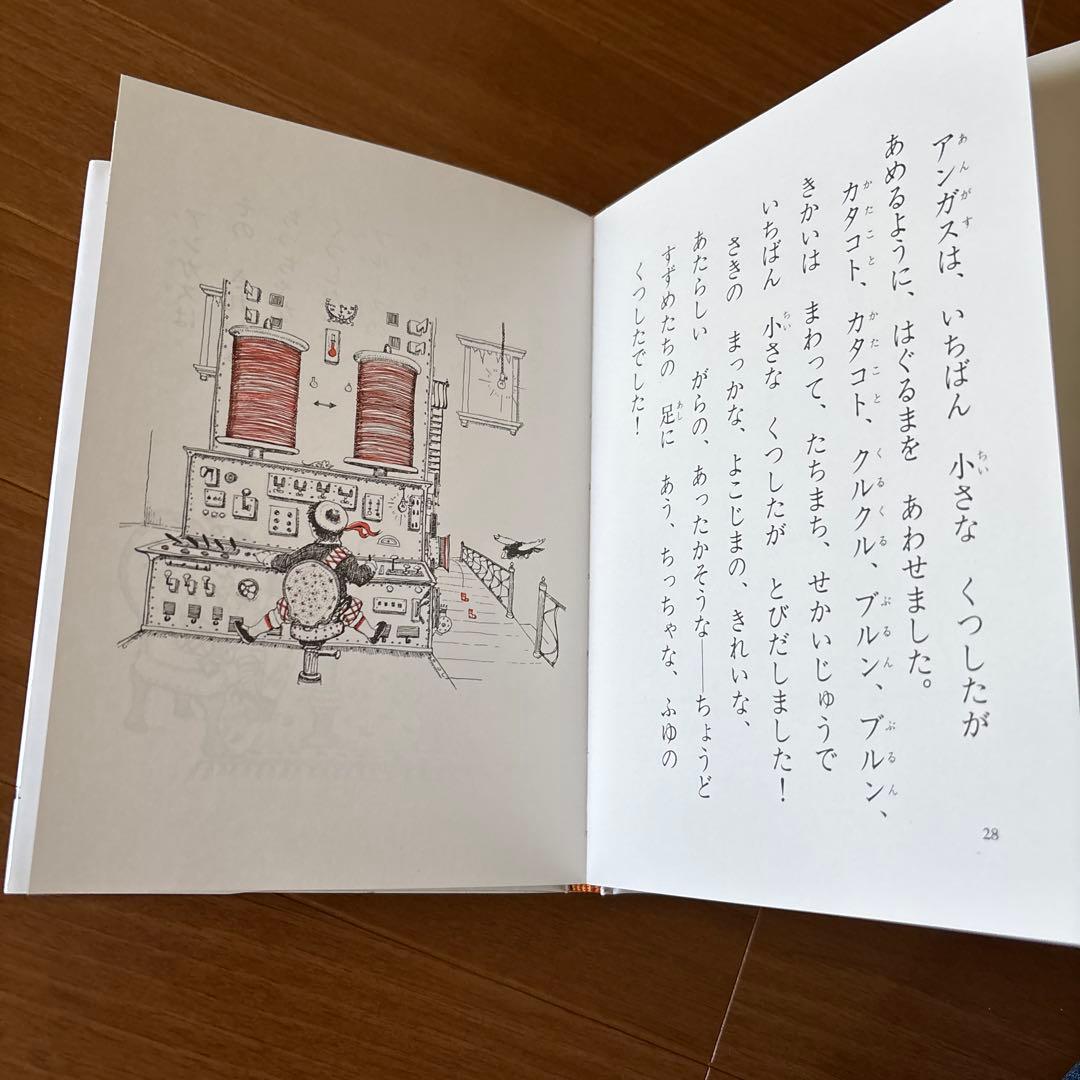 アンガスは、いちばん 小さな くつしたが
あめるように、はぐるまを あわせました。
カタコト、カタコト、クルクル、ブルン、ブルン、
きかいは まわって、たちまち、せかいじゅうで
いちばん 小さな くつしたが とびだしました！
さきの まっかな、よこじまの、きれいな、
あたらしい がらの、あったかそうな――ちょうど
すずめたちの 足に あう、ちっちゃな、ふゆの
くつしたでした！
28